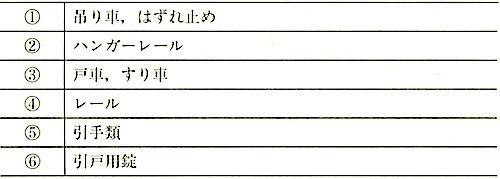 ① 吊り車，はずれ止め
② ハンガーレール
③ 戸車，すり車
④ レール
⑤ 引手類
⑥ 引戸用錠